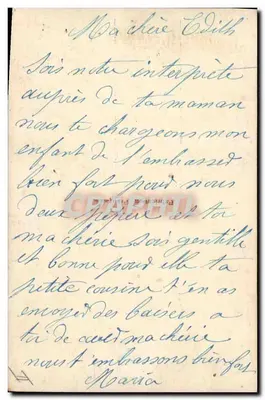 Ma chère Edith
Sois notre interprète
auprès de ta maman
nous te chargeons mon
enfant de l'embrasser
bien fort pour nous
deux et toi
ma chérie sois gentille
et bonne pour elle ta
petite cousine t'en as
envoyer des baisers a
toi de ma chérie
nous t'embrassons bien fort
Maria